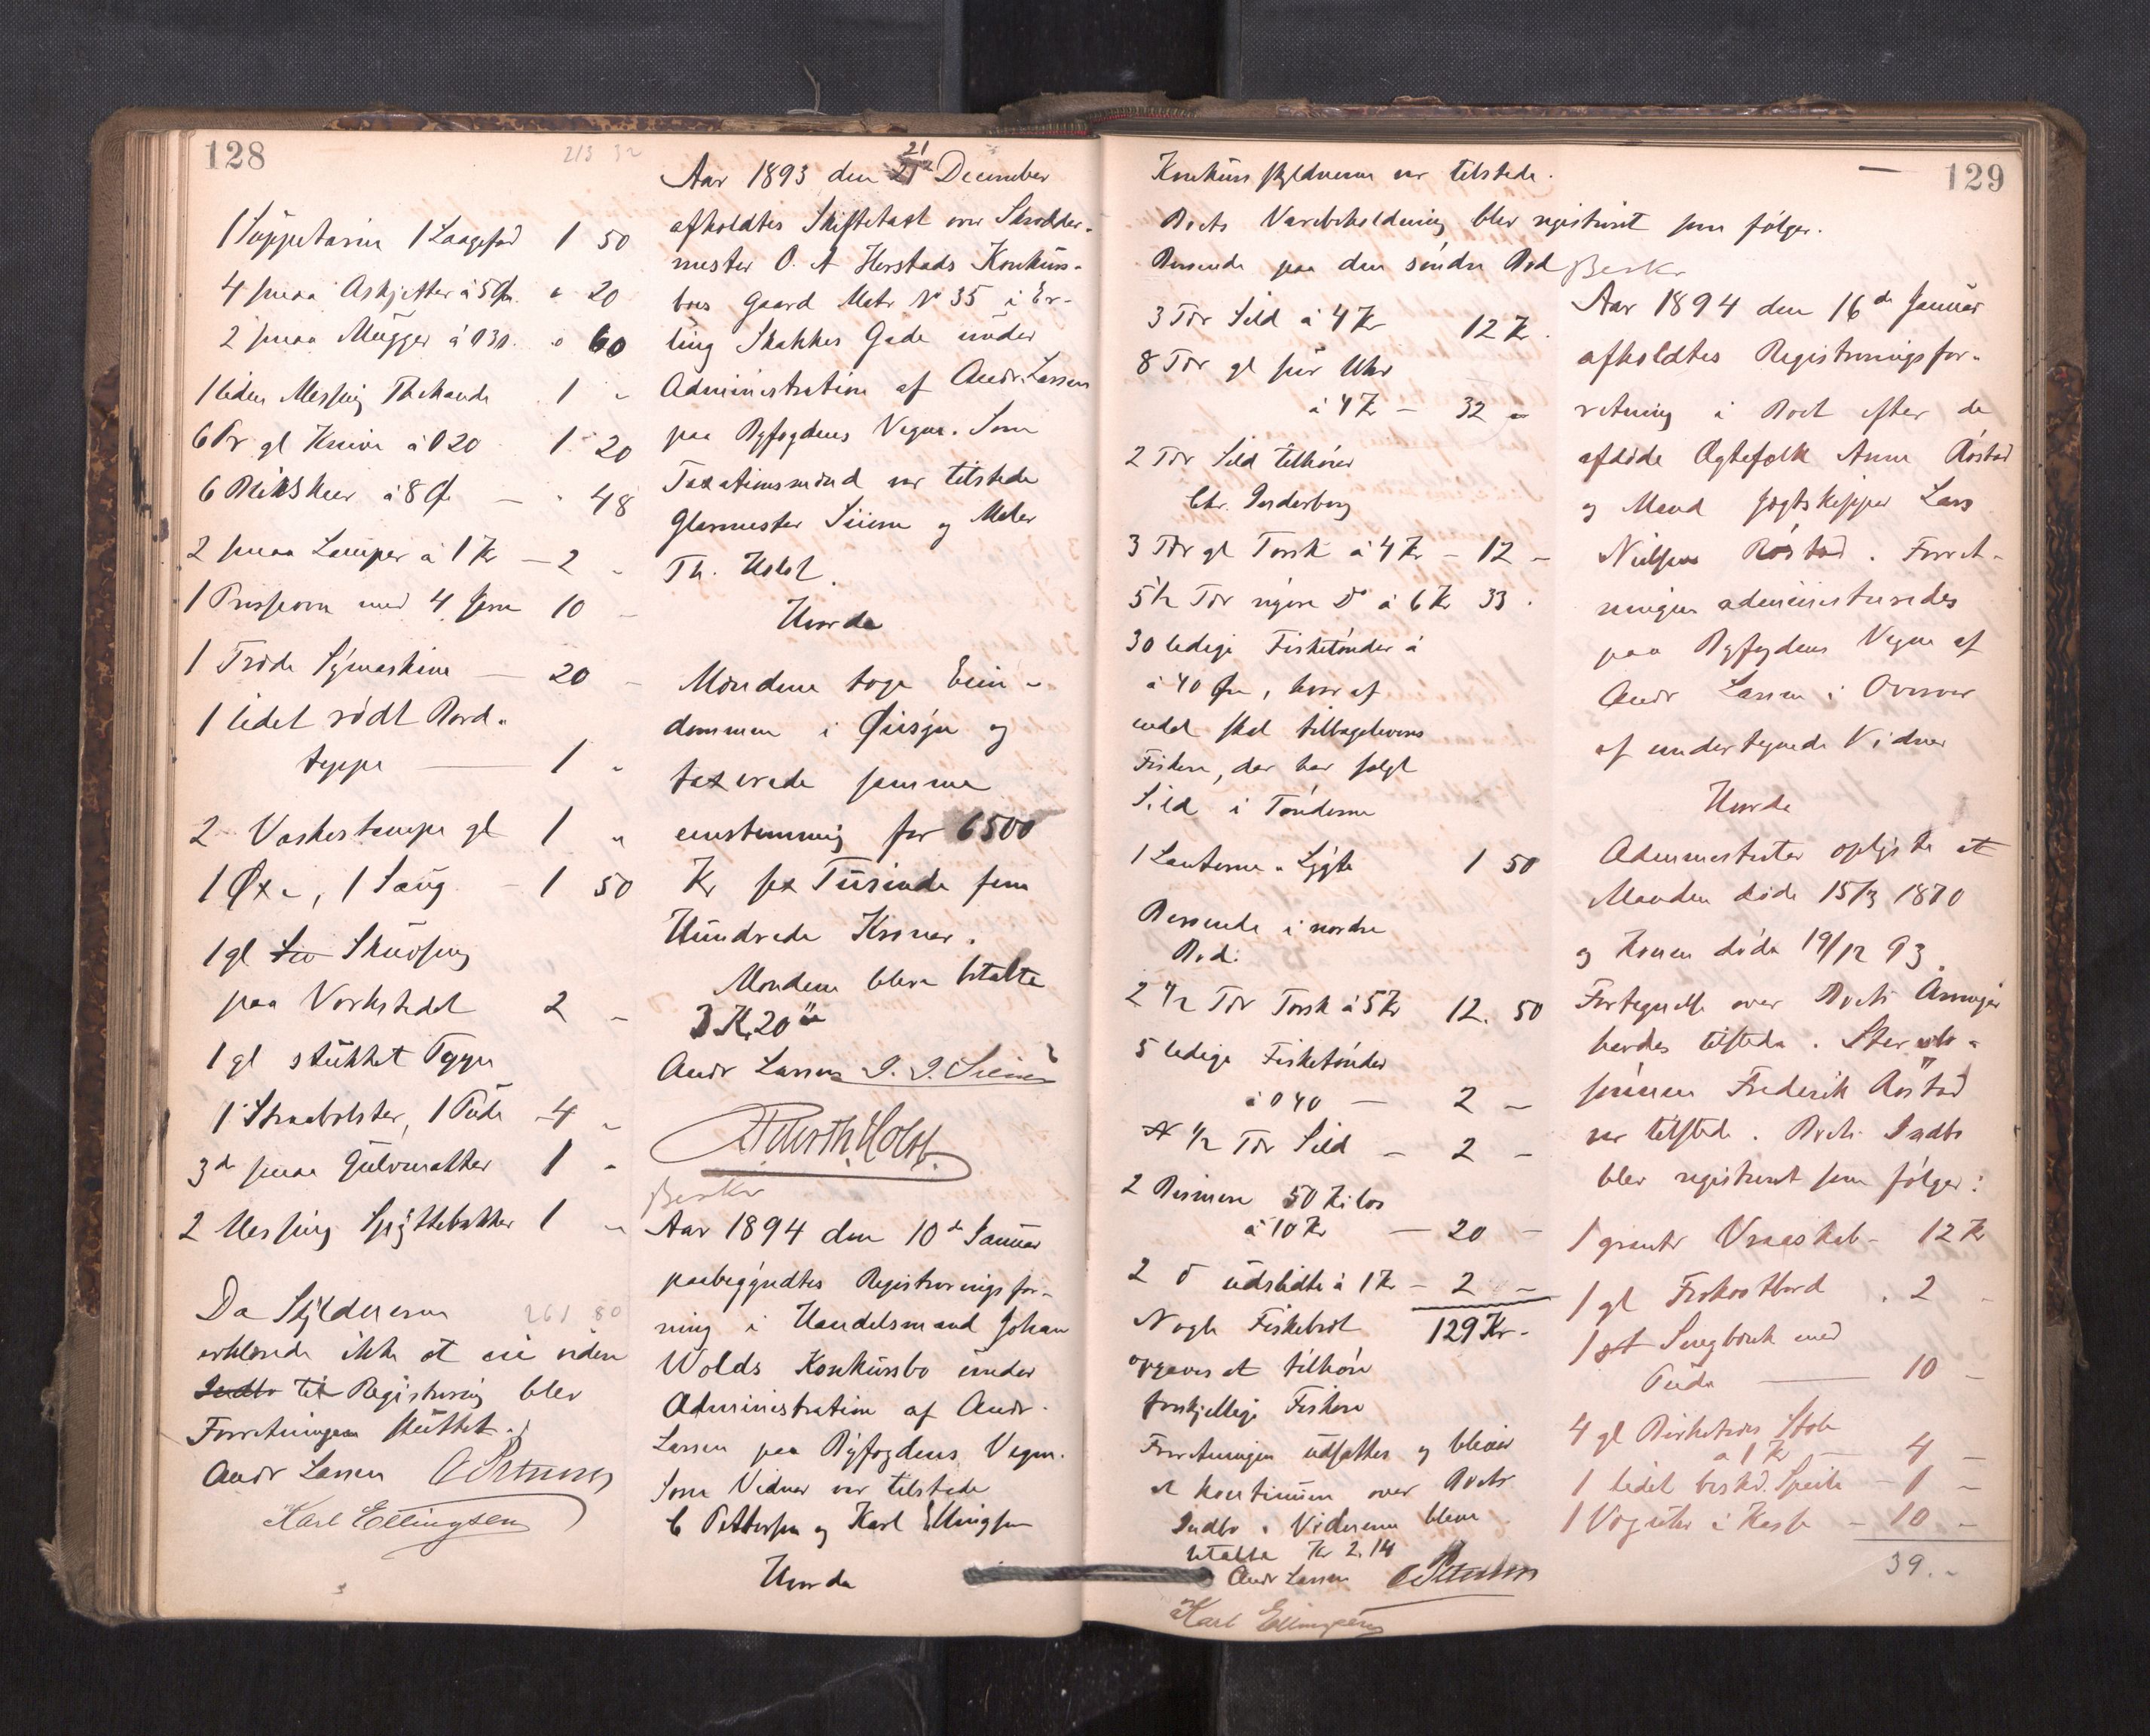 128
213 32
1 Suppeterin 1 Laagefad 1 50
4 smaa Askjetter à 5 Øre " 20
2 smaa Mugger à 030 " 60
1 liden Messing Thekande 1 "
6 Pr gl Knive à 020 1 20
6 à 8 Ør — " 48
2 smaa Lamper à 1 Kr — 2 "
1 med 4 Jern 10 —
1 Træde Symaskine — 20 —
1 lidet rødt Bord-
teppe — 1 "
2 Vaskestampe gl 1 "
1 Øxe, 1 Saug — 1 50
1 gl Skuvseng
paa Verkstedet 2 —
1 gl stukket Teppe
1 Straabolster, 1 Pude — 4 —
3de smaa Gulvmatter 1 "
2 Messing Spyttebakker 1 "
261 80
Da Skyldneren
erklærede ikke at eie videre
Indbo til Registrering blev
Forretningen sluttet.
Andr Larsen C Pettersen
Karl Ellingsen
Aar 1893 den 21 December
afholdtes Skiftetaxt over Skrædder-
mester O. A Herstads Konkurs-
boes Gaard Matr No 35 i Er-
ling Skakkes Gade under
Administration af Andr. Larsen
paa Byfogdens Vegne. Som
Taxationsmænd var tilstede
Glarmester Siem og Maler
Th. Holst.
Hvorda
Mændene toge Eien-
dommen i Øiesyn og
taxerede samme
eenstemmig for 6500
Kr sex Tusinde fem
Hundrede Kroner.
Mændene bleve betalte
3 Kr. 20 Øre
Andr Larsen J. J. Siem
Th. Holst.
Beskr
Aar 1894 den 10de Januar
paabegyndtes Registreringsfor-
ning i Handelsmand Johan
Wolds Konkursbo under
Administration af Andr.
Larsen paa Byfogdens Vegne.
Som Vidner var tilstede
C Pettersen og Karl Ellingsen
Hvorda
129
Konkursskyldneren var tilstede.
Boets Varebeholdning blev registreret som følger.
Beroende paa den søndre Bod
3 Tdr Sild à 4 Kr 12 Kr.
8 Tdr gl
à 4 Kr — 32 "
2 Tdr Sild tilhører
Chr.
3 Tdr gl Torsk à 4 Kr — 12 —
5 1/2 Tdr nyere Do à 6 Kr 33.
30 ledige Fisketønder à
à 40 Øre, hvoraf
endel skal tilbageleveres
Fiskere, der har solgt
Sild i Tønderne
1 Lanterne-Lygte 1 50
Beroende i nordre
Bod.
2 1/2 Tdr Torsk à 5 Kr 12. 50
5 ledige Fisketønder
à 040 — 2 —
1/2 Tdr Sild — 2 —
2 Bismere 50 Kilos
à 10 Kr — 20 —
2 Do udslidte à 1 Kr — 2 —
129 Kr.
Nogle Fiskebrøt
opgaves at tilhøre
forskjellige Fiskere
Forretningen udsattes og bliver
at kontinuere over Boets
Indbo. Vidnerne bleve
betalte Kr 2.14
Andr Larsen C Pettersen
Karl Ellingsen
Beskr
Aar 1894 den 16de Januar
afholdtes Registreringsfor-
retning i Boet efter de
afdøde Ægtefolk Anne Røstad
og Mand Jægtskipper Lars
Nielsen Røstad. Forret-
ningen administreredes
paa Byfogdens Vegne af
Andr Larsen i Overvær
af undertegnede Vidner
Hvorda
Administrator oplyste at
Manden døde 15/3 1870
og Konen døde 19/12 93.
Fortegnelse over Boets Arvinger
havdes tilstede. Stervbo-
sønnen Frederik Røstad
var tilstede. Boets Indbo
blev registreret som følger:
1 grønt Vraaskab — 12 Kr
1 gl Frokostbord . 2 —
1 st Sengbænk med
Pude — 10 —
4 gl Birketræs Stole
à 1 Kr — 4 —
1 lidet beskd. Speile — 1 —
1 Væguhr i Kasse — 10 —
39. —